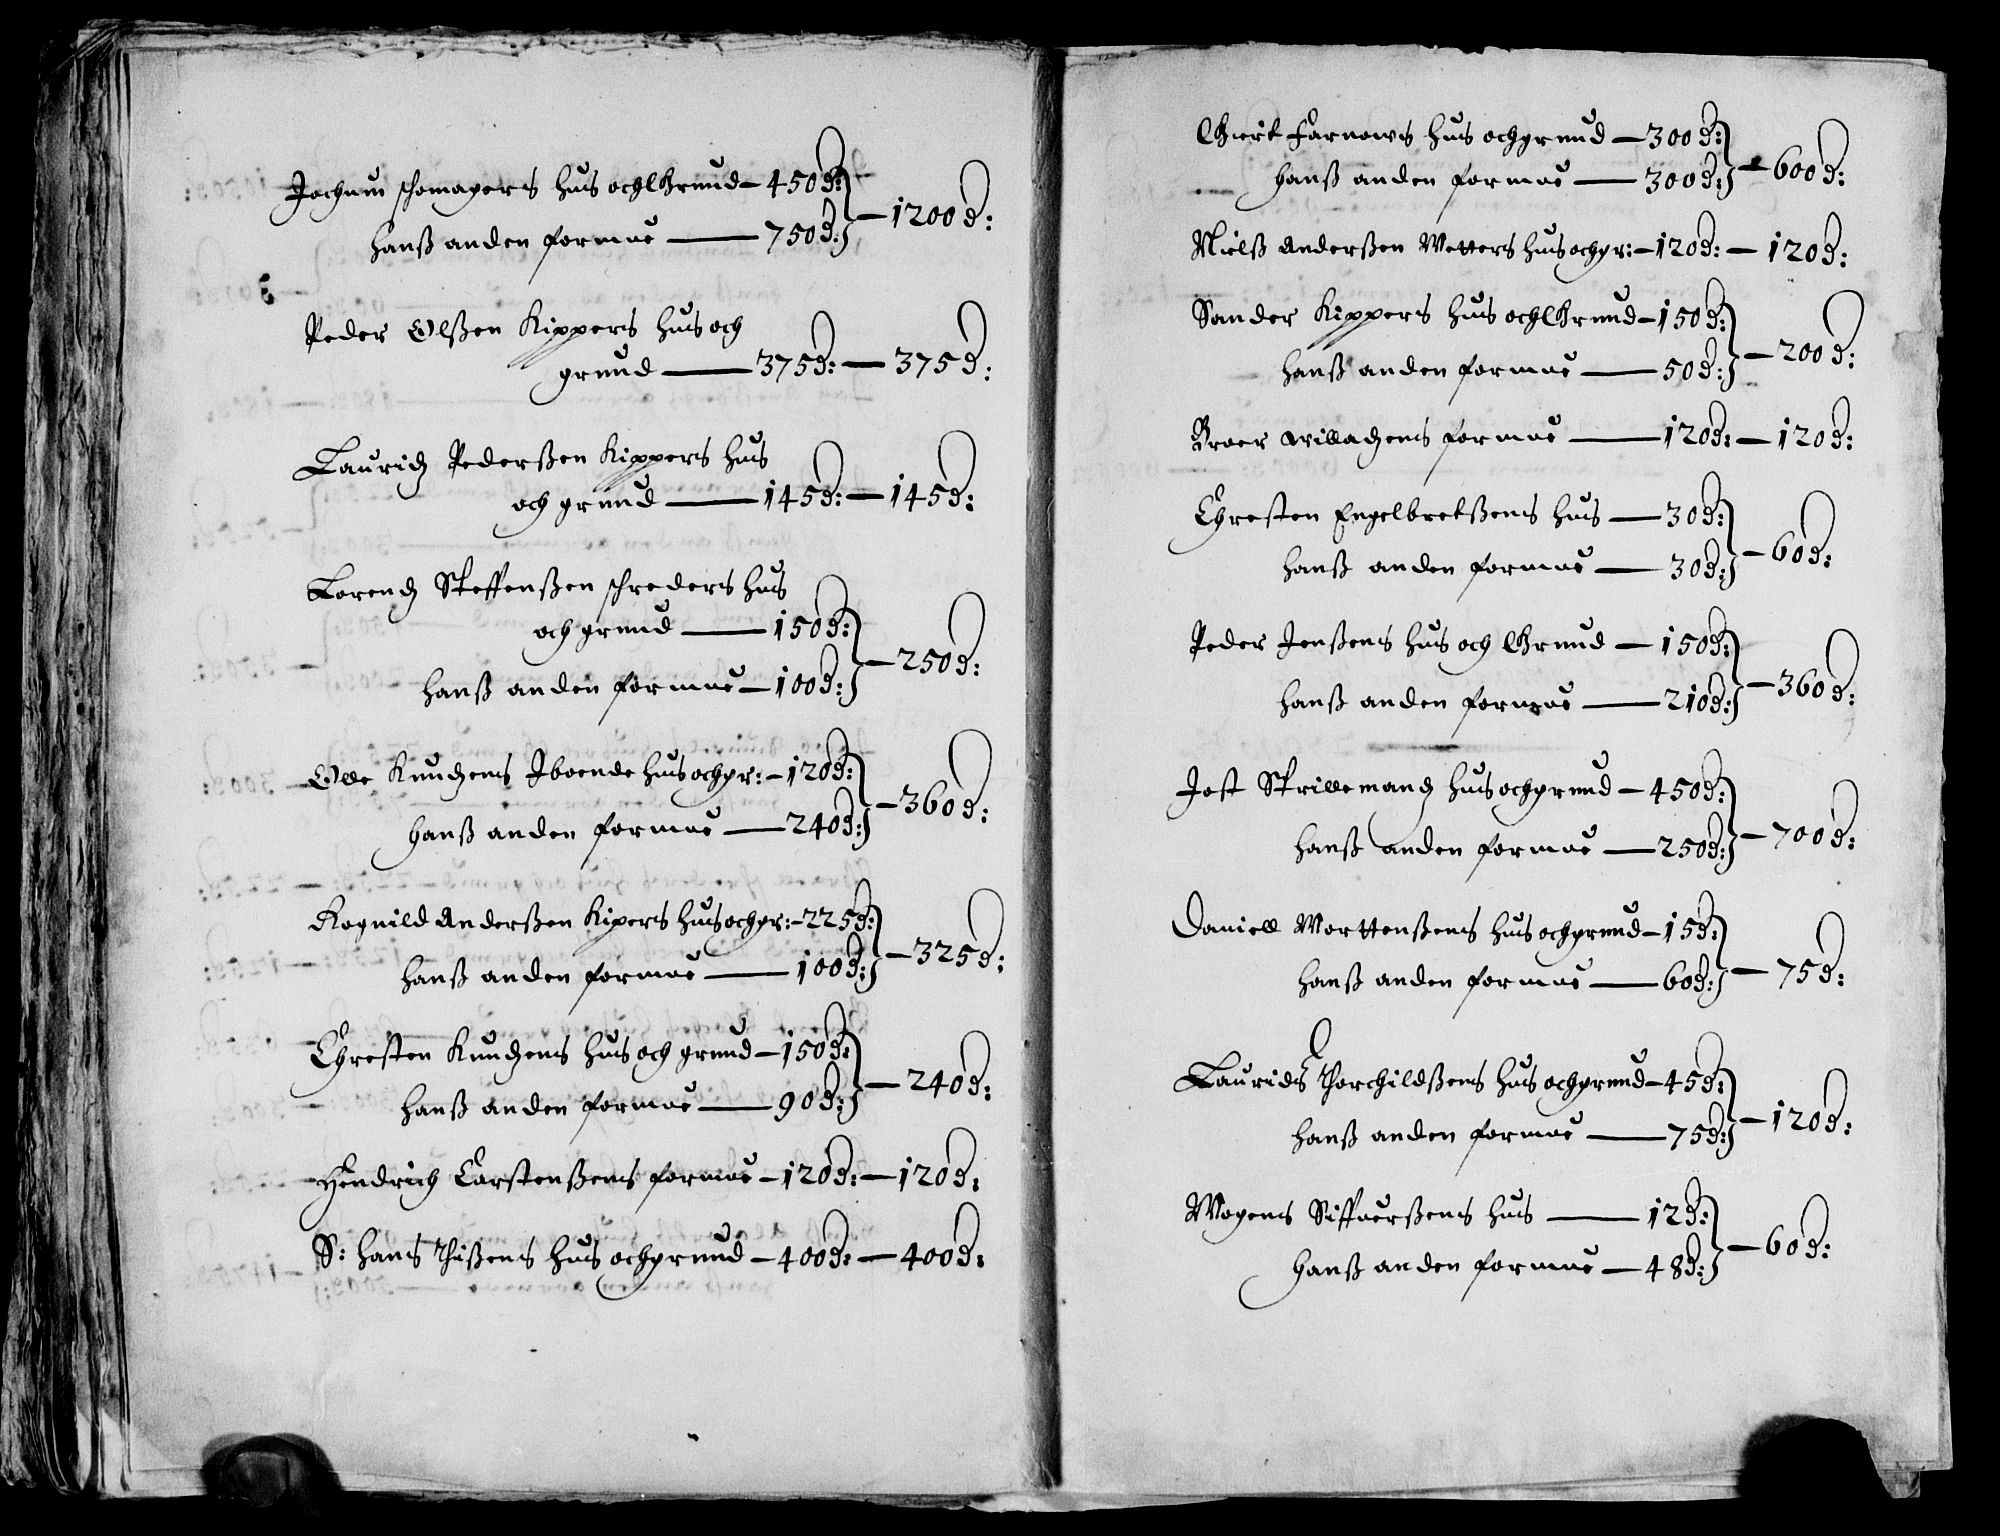 Jochum schomagers Huus och Grund — 450 d:
hanß anden formue — 750 d: — 1200 d:
Peder Olßen Kippers Huus och
grund — 375 d: — 375 d:
Lauridz Pederßen Kippers Huus
och grund — 145 d: — 145 d:
Lorendz Steffenßen schreders Huus
och grund — 150 d:
hanß anden formue — 100 d: — 250 d:
Olle Knudzens Iboende Huus och gr: — 120 d:
hanß anden formue — 240 d: — 360 d:
Rognild Anderßen Kipers Huus och gr: — 225 d:
hanß anden formue — 100 d: — 325 d:
Chresten Knudzens Huus och grund — 150 d:
hanß anden formue — 90 d: — 240 d:
Hendrich Carstenßens formue — 120 d: — 120 d:
S: Hans Thißens Huus och grund — 400 d: — 400 d:
Giert Farnows Huus och grund — 300 d:
hanß anden formue — 300 d: — 600 d:
Nielß Anderßen Wetters Huus och gr: — 120 d: — 120 d:
Sander Kippers Huus och Grund — 150 d:
hanß anden formue — 50 d: — 200 d:
Broer Willadzens formue — 120 d: — 120 d:
Chresten Engelbretßens Huus — 30 d:
hanß anden formue — 30 d: — 60 d:
Peder Jenßens Huus och Grund — 150 d:
hanß anden formue — 210 d: — 360 d:
Jost Skrillemandz Huus och grund — 450 d:
hanß anden formue — 250 d: — 700 d:
Daniell Morttenßens Huus och grund — 15 d:
hanß anden formue — 60 d: — 75 d:
Laurids Thorchildßens Huus och grund — 45 d:
hanß anden formue — 75 d: — 120 d:
Mogens Siffuerßens Huus — 12 d:
hanß anden formue — 48 d: — 60 d: